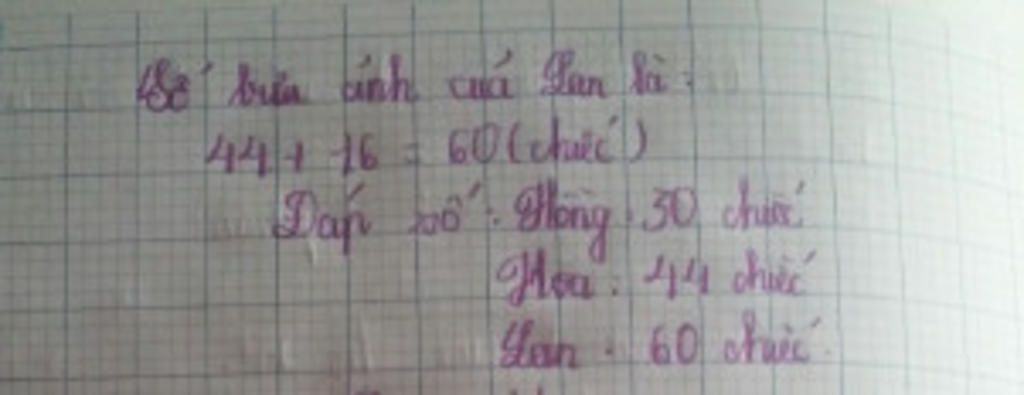 Số bưu ảnh của Lan là:
44 + 16 = 60 (chiếc)
Đáp số: Hồng: 30 chiếc
Hoa: 44 chiếc
Lan: 60 chiếc.